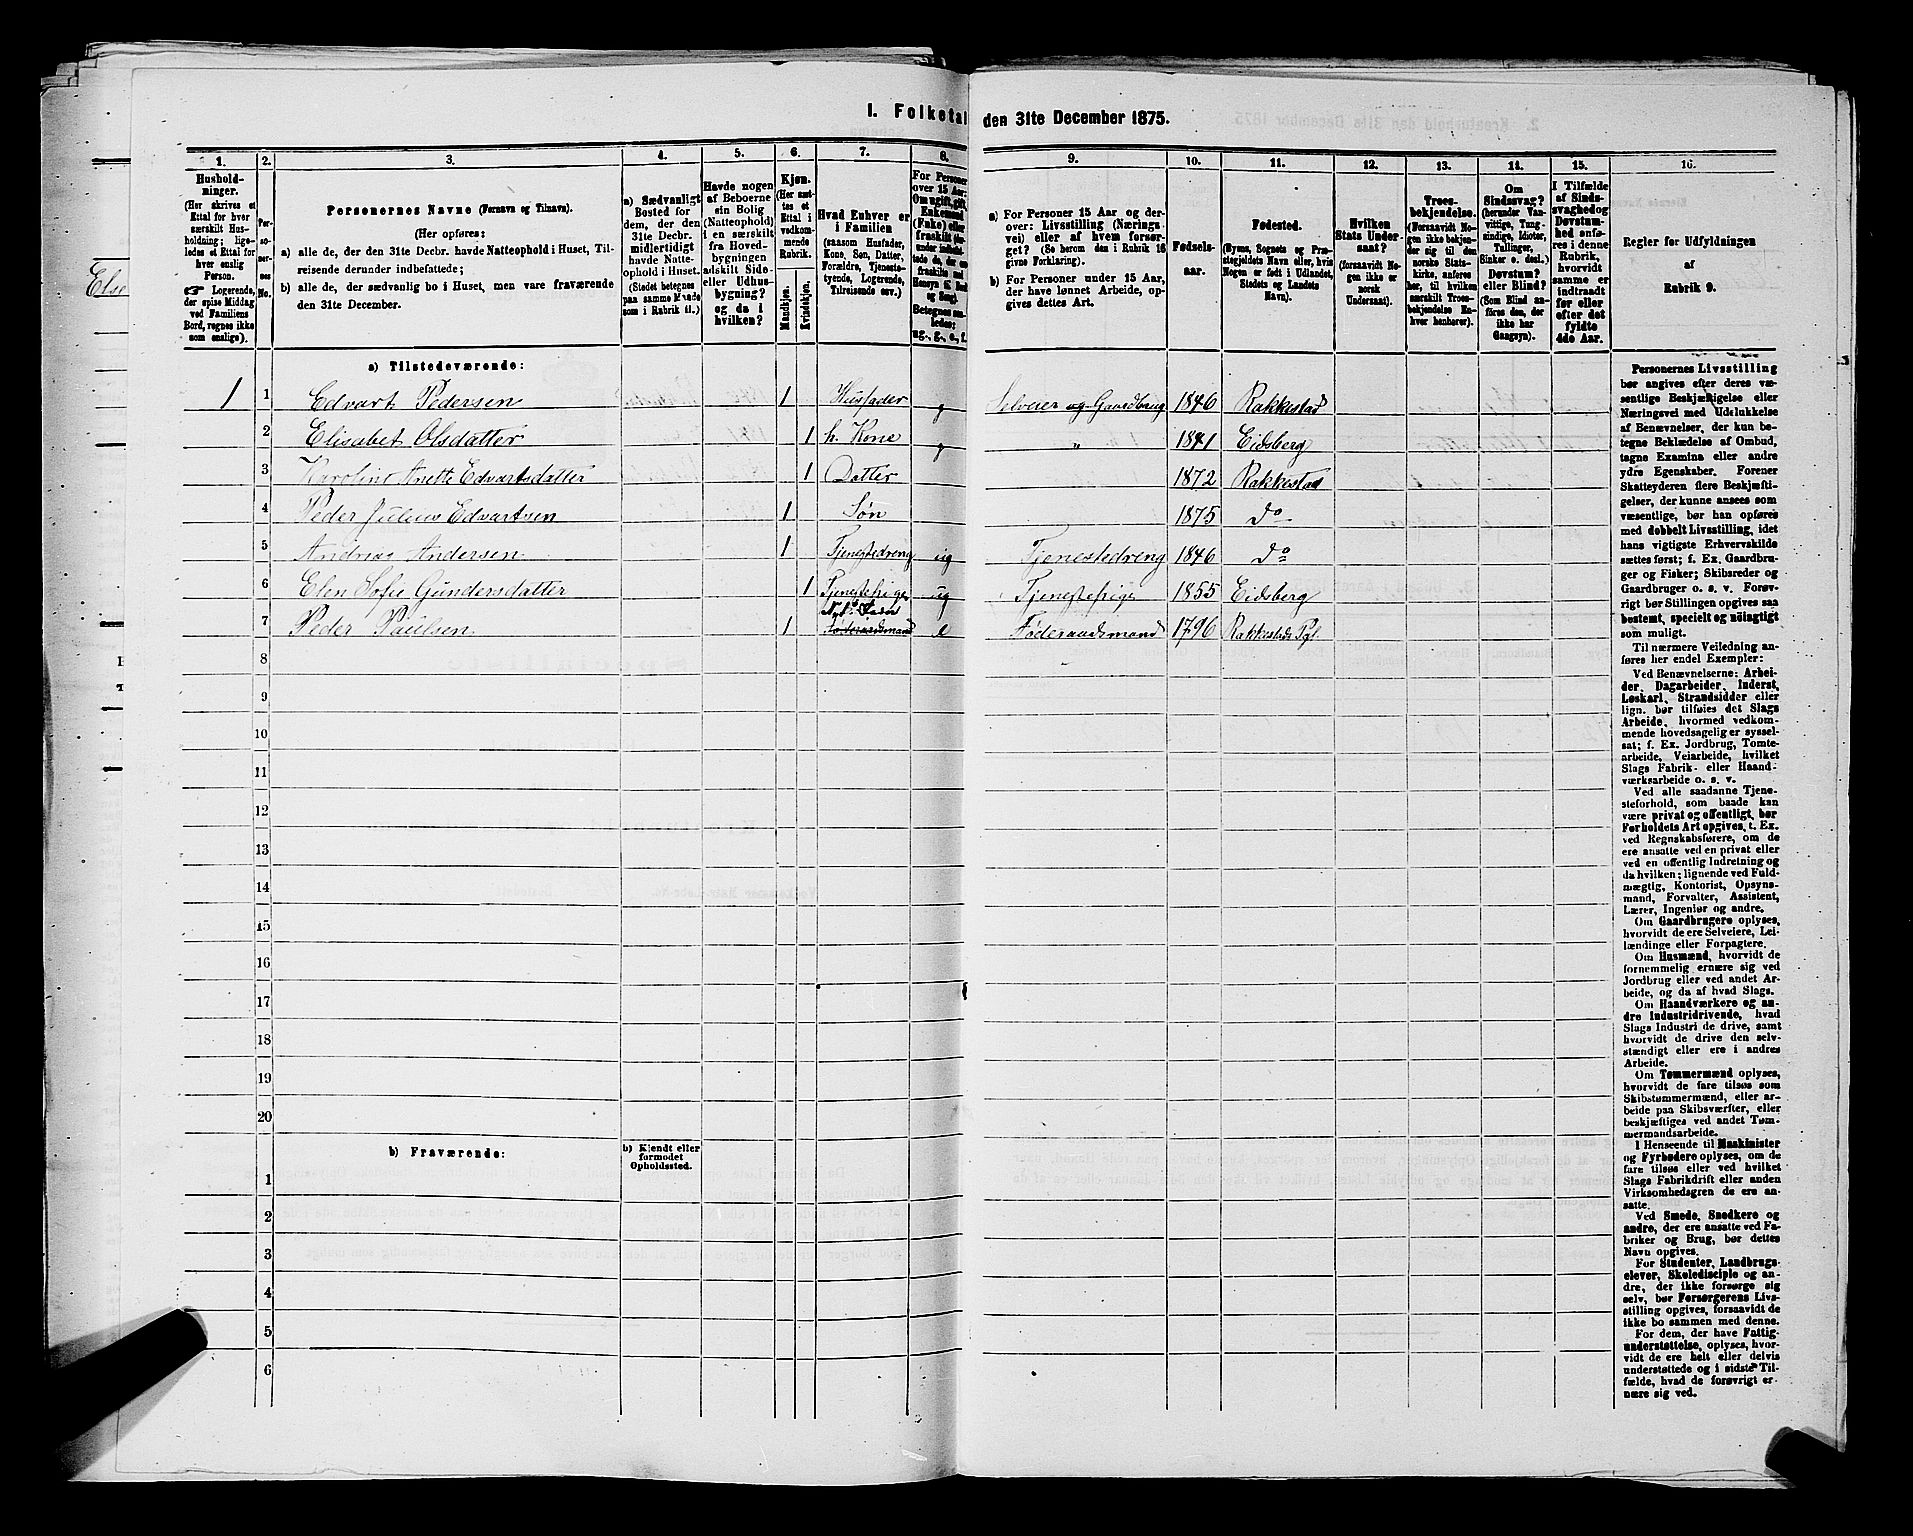 I. Folketal den 31te December 1875.
1. 2. 3. 4. 5. 6. 7. 8. 9. 10. 11. 12. 13. 14. 15. 16.
Hushold-
ninger.
(Her skrives et
Ettal for hver
særskilt Hus-
holdning; lige-
ledes et Ettal for
hver enslig
Person.
☞ Logerende,
der spise Middag
ved Familiens
Bord, regnes ikke
som enslige).
Per-
so-
ner-
nes
No.
Personernes Navne (Fornavn og Tilnavn).
(Her opføres:
a) alle de, der den 31te Decbr. havde Natteophold i Huset, Til-
reisende derunder indbefattede;
b) alle de, der sædvanlig bo i Huset, men vare fraværende
den 31te December.
a) Sædvanligt
Bosted for
dem, der den
31te Decbr.
midlertidigt
havde Natte-
ophold i Huset.
(Stedet betegnes
paa samme Maade
som i Rubrik 11.)
Havde nogen
af Beboerne
sin Bolig
(Natteophold)
i en særskilt
fra Hoved-
bygningen
adskilt Side-
eller Udhus-
bygning?
og da i
hvilken?
Kjøn.
(Her sæt-
tes et
Ettal i
vedkom-
mende
Rubrik.
Mandkjøn.
Kvindekjøn.
Hvad Enhver er
i Familien
(saasom Husfader,
Kone, Søn, Datter,
Forældre, Tjeneste-
tyende, Logerende,
Tilreisende osv.)
For Personer
over 15 Aar:
Om ugift, gift,
Enkemand
(Enke) eller
fraskilt
Betegnes saa-
ledes:
ug., g., e., f.
a) For Personer 15 Aar og der-
over: Livsstilling (Nærings-
vei) eller af hvem forsør-
get? (Se herom den i Rubrik 16
givne Forklaring).
b) For Personer under 15 Aar,
der have lønnet Arbeide, op-
gives dettes Art.
Fødsels-
aar.
Fødested.
(Byens, Sognets og Præ-
stegjeldets Navn eller, hvis
Nogen er født i Udlandet,
Stedets og Landets
Navn).
Hvilken
Stats Under-
saat?
(forsaavidt No-
gen ikke er
norsk
Undersaat).
Troes-
bekjendelse.
(Forsaavidt No-
gen ikke bekjen-
der sig til den
norske Stats-
kirke, anføres
her, til hvilken
særskilt Troes-
bekjendelse En-
hver henhører).
Om
Sindssvag?
(herunder Van-
vittige, Tung-
sindige, Idioter,
Tullinger,
Sinker o. desl.)
Døvstum?
eller Blind?
(Som Blind an-
føres den, der
ikke har
Gangsyn).
I Tilfælde
af Sinds-
svaghed og
Døvstum-
hed anfø-
res i denne
Rubrik,
hvorvidt
samme er
indtraadt
før eller
efter det
fyldte
4de Aar.
Regler for Udfyldningen
af
Rubrik 9.
a) Tilstedeværende:
1 1 Edvart Pedersen 1 Husfader g Selveier og Gaardbrug 1846 Rakkestad
2 Elisabet Olsdatter 1 h. Kone g " 1841 Eidsberg
3 Karoline Anette Edvartsdatter 1 Datter 1872 Rakkestad
4 Peder Julius Edvartsen 1 Søn 1875 Do
5 Andreas Andersen 1 Tjenestedreng ug Tjenestedreng 1846 Do
6 Elen Sofie Gundersdatter 1 Tjenestepige ug Tjenestepige 1855 Eidsberg
7 Peder Paulsen 1 Føderaadsmand e Føderaadsmand 1796 Rakkestads Pgl.
8
9
10
11
12
13
14
15
16
17
18
19
20
b) Fraværende:
b) Kjendt eller
formodet
Opholdssted.
1
2
3
4
5
6
Personernes Livsstilling
bør angives efter deres væ-
sentlige Beskjæftigelse eller
Næringsvei med Udelukkelse
af Benævnelser, der kun be-
tegne Beklædelse af Ombud,
tagne Examina eller andre
ydre Egenskaber. Forener
Skatteyderen flere Beskjæfti-
gelser, der kunne ansees som
væsentlige, bør han opføres
med dobbelt Livsstilling, idet
hans vigtigste Erhvervskilde
sættes først; f. Ex. Gaardbru-
ger og Fisker; Skibsreder og
Gaardbruger o. s. v. Forøv-
rigt bør Stillingen opgives saa
bestemt, specielt og nøiagtigt
som muligt.
Til nærmere Veiledning an-
føres her endel Exempler:
Ved Benævnelserne: Arbei-
der, Dagarbeider, Inderst,
Løskarl, Strandsidder eller
lign. bør tilføies det Slags
Arbeide, hvormed vedkom-
mende hovedsagelig er syssel-
sat; f. Ex. Jordbrug, Tomte-
arbeide, Veiarbeide, hvilket
Slags Fabrik- eller Haand-
værksarbeide o. s. v.
Ved alle saadanne Tjene-
steforhold, som baade kan
være privat og offentligt, bør
Forholdets Art opgives, t. Ex.
ved Regnskabsførere, om de
ere ansatte ved en privat eller
ved en offentlig Indretning og
da hvilken; lignende ved Fuld-
mægtig, Kontorist, Opsyns-
mand, Forvalter, Assistent,
Lærer, Ingeniør og andre.
Om Gaardbrugere oplyses,
hvorvidt de ere Selveiere, Lei-
lændinge eller Forpagtere.
Om Husmænd, hvorvidt de
fornemmelig ernære sig ved
Jordbrug eller ved andet Ar-
beide, og da af hvad Slags.
Om Haandværkere og an-
dre Industridrivende, hvad
Slags Industri de drive, samt
hvorvidt de drive den selv-
stændigt eller ere i andres
Arbeide.
Om Tømmermænd oplyses,
hvorvidt de fare tilsøs som
Skibstømmermænd, eller ar-
beide paa Skibsværfter, eller
beskjæftiges ved andet Tøm-
mermandsarbeide.
I Henseende til Maskinister
og Fyrbødere oplyses, om de
fare tilsøs eller ved hvilket
Slags Fabrikdrift eller anden
Virksomhedsgren de ere an-
satte.
Ved Smede, Snedkere og
andre, der ere ansatte ved Fa-
briker og Brug, bør dettes
Navn opgives.
For Studenter, Landbrugs-
elever, Skoledisciple og an-
dre, der ikke forsørge sig
selv, bør Forsørgerens Livs-
stilling opgives, forsaavidt de
ikke bo sammen med denne.
For dem, der have Fattig-
understøttelse, oplyses, hvor-
vidt de ere helt eller delvis
understøttede og i sidste Til-
fælde, hvad de forøvrigt er-
nære sig ved.
Else